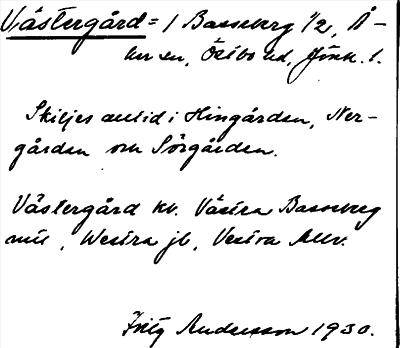 Västergård = 1 Basseberg 1/2, Å-
ker sn, Östbo hd, Jönk. l.
Skiljes alltid i Hingården, Ner-
gården och Sörgården.
Västergård kv. Västra Basseberg
mtl, Westra jb, Vestra
Fritz Andersson 1930.